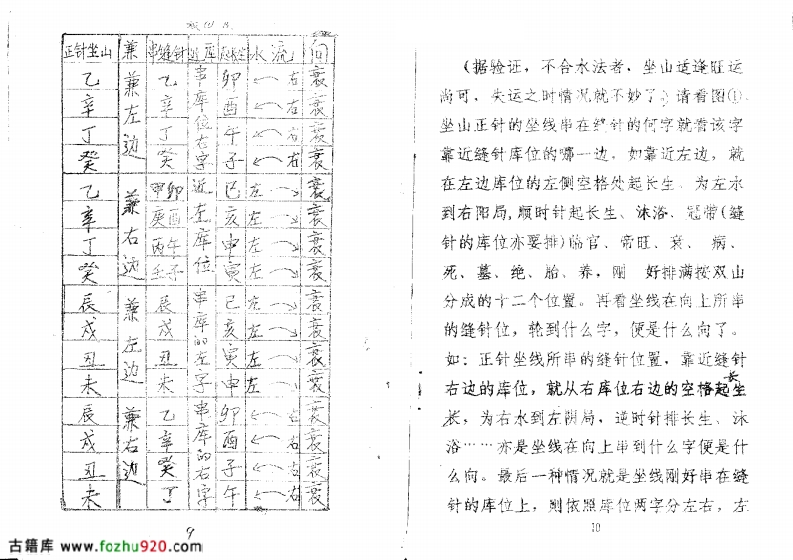 正针坐山 兼 串缝针 近库 起长生 水流 向
乙 兼左边 乙 串库位右字 卯 ←右 衰
辛 辛 酉 ←右 衰
丁 丁 午 ←右 衰
癸 癸 子 ←右 衰
乙 兼右边 甲卯 近左库位 巳 左→ 衰
辛 庚酉 亥 左→ 衰
丁 丙午 申 左→ 衰
癸 壬子 寅 左→ 衰
辰 兼左边 辰 串库的左字 巳 左→ 衰
戍 戍 亥 左→ 衰
丑 丑 寅 左→ 衰
未 未 申 左→ 衰
辰 兼右边 乙 串库的右字 卯 ←右 衰
戍 辛 酉 ←右 衰
丑 癸 子 ←右 衰
未 丁 午 ←右 衰
9
(据验证，不合水法者，坐山适逢旺运
尚可，失运之时情况就不妙了)请看图①.
坐山正针的坐线串在缝针的何字就看该字
靠近缝针库位的哪一边。如靠近左边，就
在左边库位的左侧空格处起长生、为左水
到右阳局,顺时针起长生、沐浴、冠带(缝
针的库位亦要排)临官、帝旺、衰、病、
死、墓、绝、胎、养，刚 好排满按双山
分成的十二个位置。再看坐线在向上所串
的缝针位，轮到什么字，便是什么向了。
如：正针坐线所串的缝针位置，靠近缝针
右边的库位，就从右库位右边的空格起坐长
长，为右水到左阴局，逆时针排长生、沐
浴……亦是坐线在向上串到什么字便是什
么向。最后一种情况就是坐线刚好串在缝
针的库位上，则依照库位两字分左右，左
10
古籍库 www.fozhu920.com